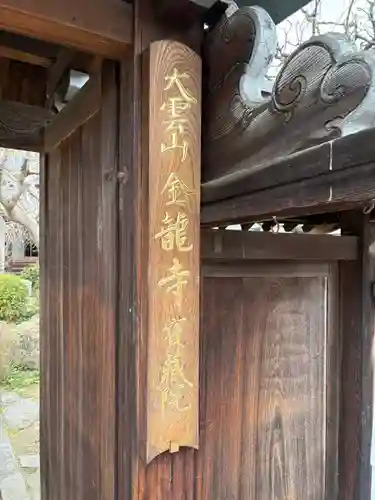 大雲山金龍寺